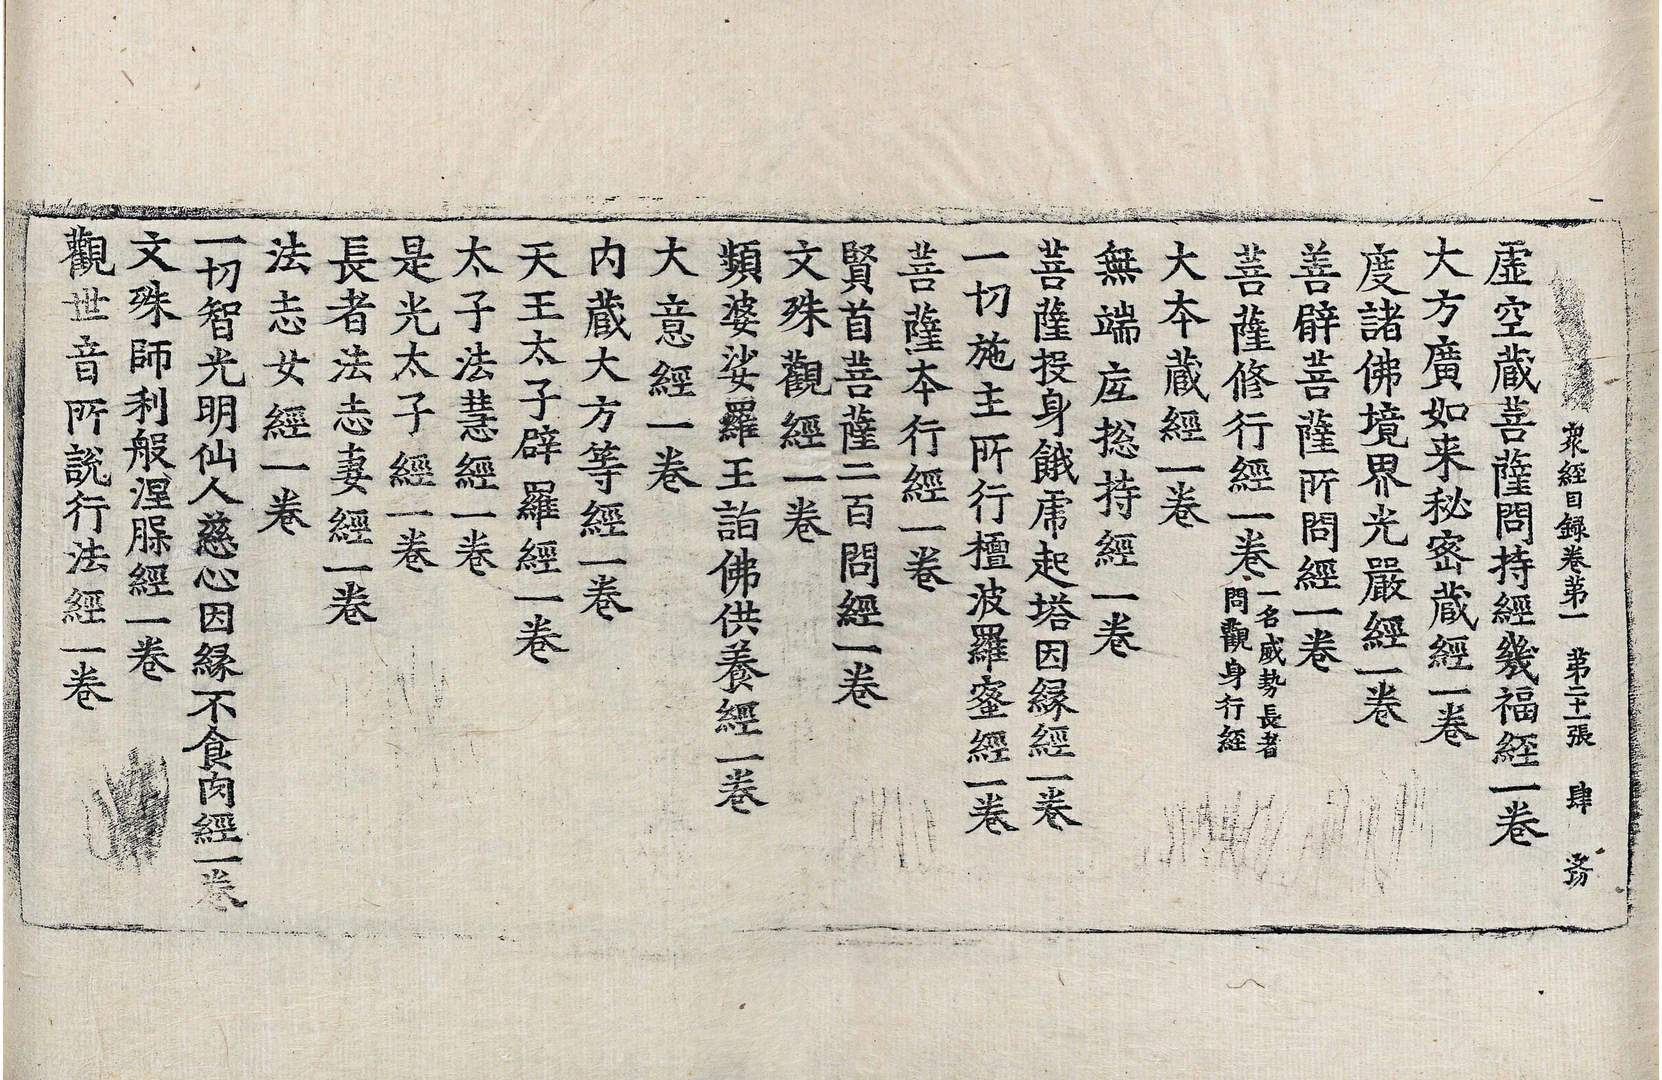 衆經目録卷第一　第二十一張　肆　𠡠
虚空蔵菩薩問持經幾福經一卷
大方廣如来秘密蔵經一卷
度諸佛境界光嚴經一卷
善臂菩薩所問經一卷
菩薩修行經一卷一名威勢長者問觀身行經
大夲蔵經一卷
無端底捴持經一卷
菩薩投身餓虎起塔因縁經一卷
一切施主所行檀波羅蜜經一卷
菩薩夲行經一卷
賢首菩薩二百問經一卷
文殊觀經一卷
頻婆娑羅王詣佛供養經一卷
大意經一卷
内蔵大方等經一卷
天王太子辟羅經一卷
太子法慧經一卷
是光太子經一卷
長者法志妻經一卷
法志女經一卷
一切智光明仙人慈心因縁不食肉經一卷
文殊師利般涅槃經一卷
觀世音所說行法經一卷